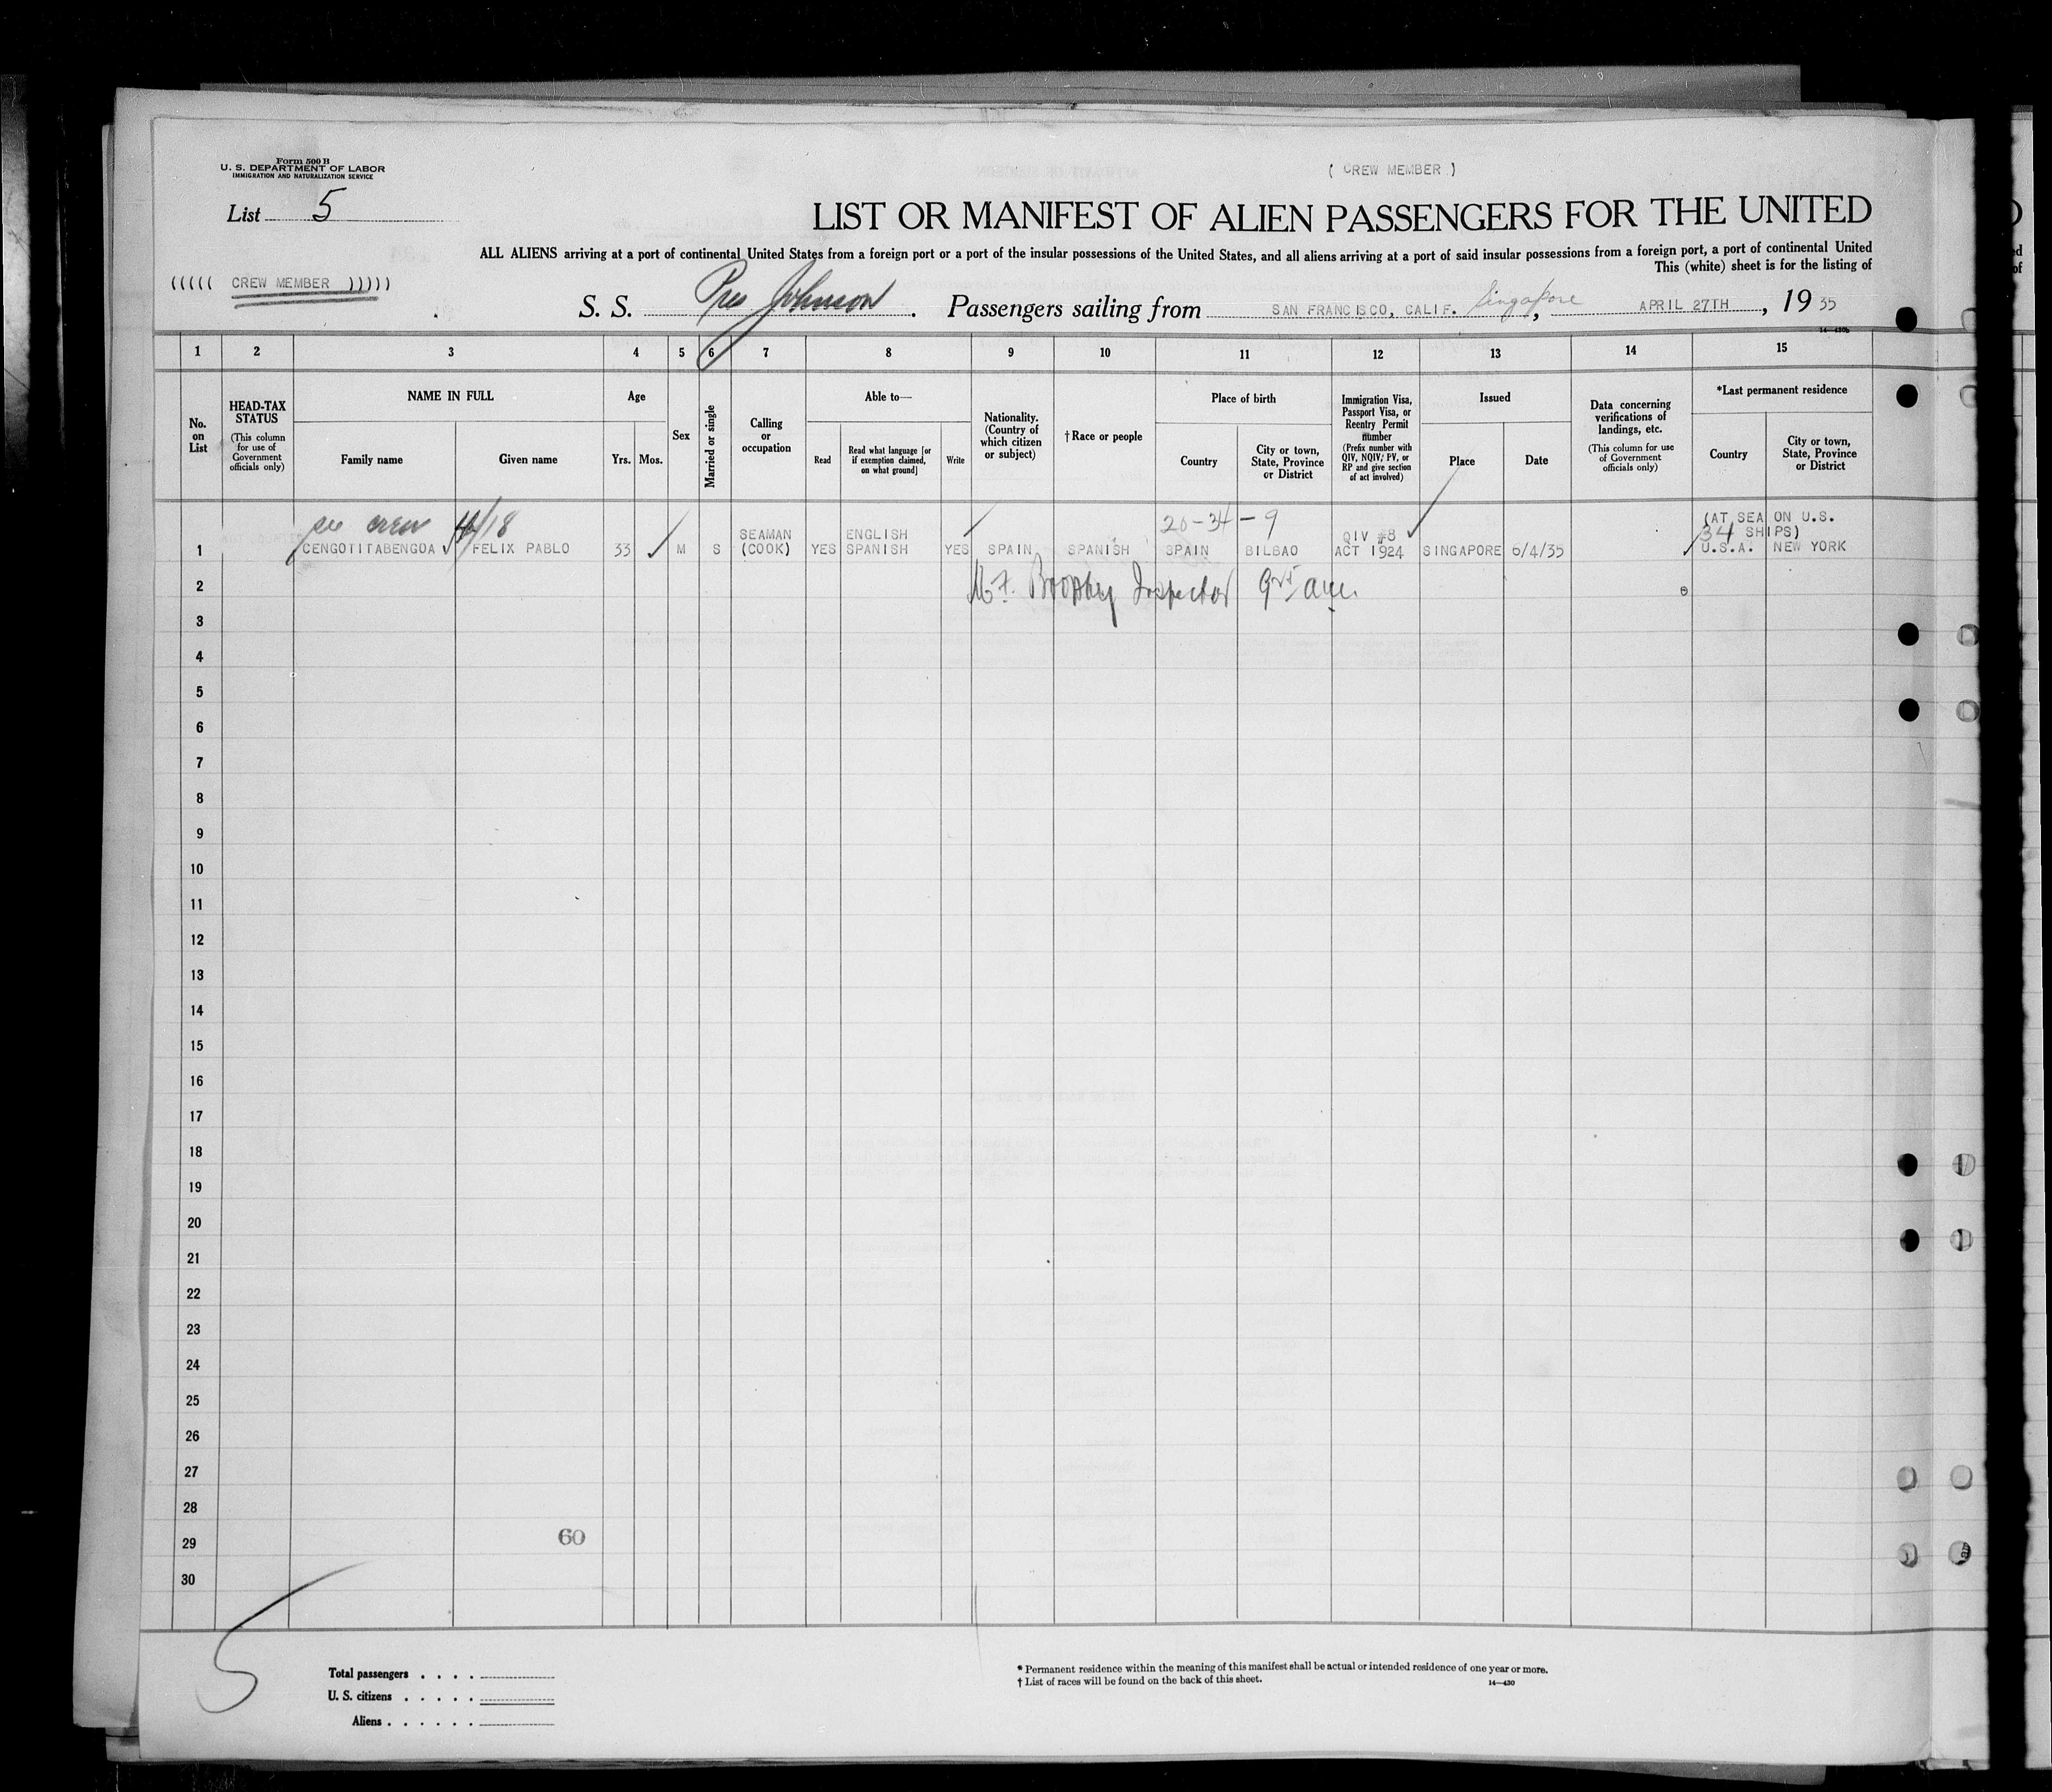 Form 500 B
U. S. DEPARTMENT OF LABOR
IMMIGRATION AND NATURALIZATION SERVICE
( CREW MEMBER )
List 5
LIST OR MANIFEST OF ALIEN PASSENGERS FOR THE UNITED
ALL ALIENS arriving at a port of continental United States from a foreign port or a port of the insular possessions of the United States, and all aliens arriving at a port of said insular possessions from a foreign port, a port of continental United
This (white) sheet is for the listing of
((((( CREW MEMBER )))))
S. S. Pres Johnson. Passengers sailing from SAN FRANCISCO, CALIF. Singapore, APRIL 27TH, 19 35
14—430b
1 2 3 4 5 6 7 8 9 10 11 12 13 14 15
No. on List
HEAD-TAX STATUS
(This column for use of Government officials only)
NAME IN FULL
Family name
Given name
Age
Yrs. Mos.
Sex
Married or single
Calling or occupation
Able to—
Read
Read what language [or if exemption claimed, on what ground]
Write
Nationality. (Country of which citizen or subject)
† Race or people
Place of birth
Country
City or town, State, Province or District
Immigration Visa, Passport Visa, or Reentry Permit number
(Prefix number with QIV, NQIV, PV, or RP and give section of act involved)
Issued
Place
Date
Data concerning verifications of landings, etc.
(This column for use of Government officials only)
*Last permanent residence
Country
City or town, State, Province or District
see crew /18
20-34-9
(AT SEA ON U.S.
SEAMAN ENGLISH QIV #8 34 SHIPS)
1 CENGOTITABENGOA FELIX PABLO 33 M S (COOK) YES SPANISH YES SPAIN SPANISH SPAIN BILBAO ACT 1924 SINGAPORE 6/4/35 U.S.A. NEW YORK
2 Inspector
3
4
5
6
7
8
9
10
11
12
13
14
15
16
17
18
19
20
21
22
23
24
25
26
27
28
29 60
30
5
Total passengers . . . .
U. S. citizens . . . . .
Aliens . . . . . .
* Permanent residence within the meaning of this manifest shall be actual or intended residence of one year or more.
† List of races will be found on the back of this sheet.
14—430